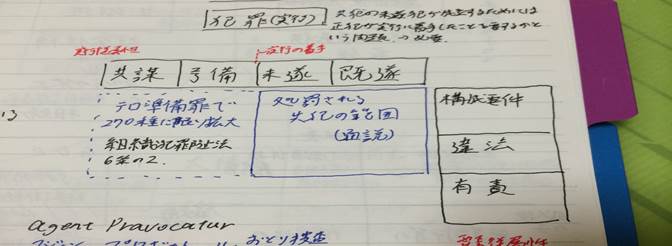 犯罪(実行)
共犯の未遂犯が成立するためには
正犯が実行に着手したことを要するか
という問題。→必要
実行の着手
共謀 予備 未遂 既遂
テロ準備罪で
270種に限り拡大
組織犯罪防止法
6条の2.
処罰される
共犯の範囲
(通説)
構成要件
違法
有責
agent Pravocatur
おとり捜査